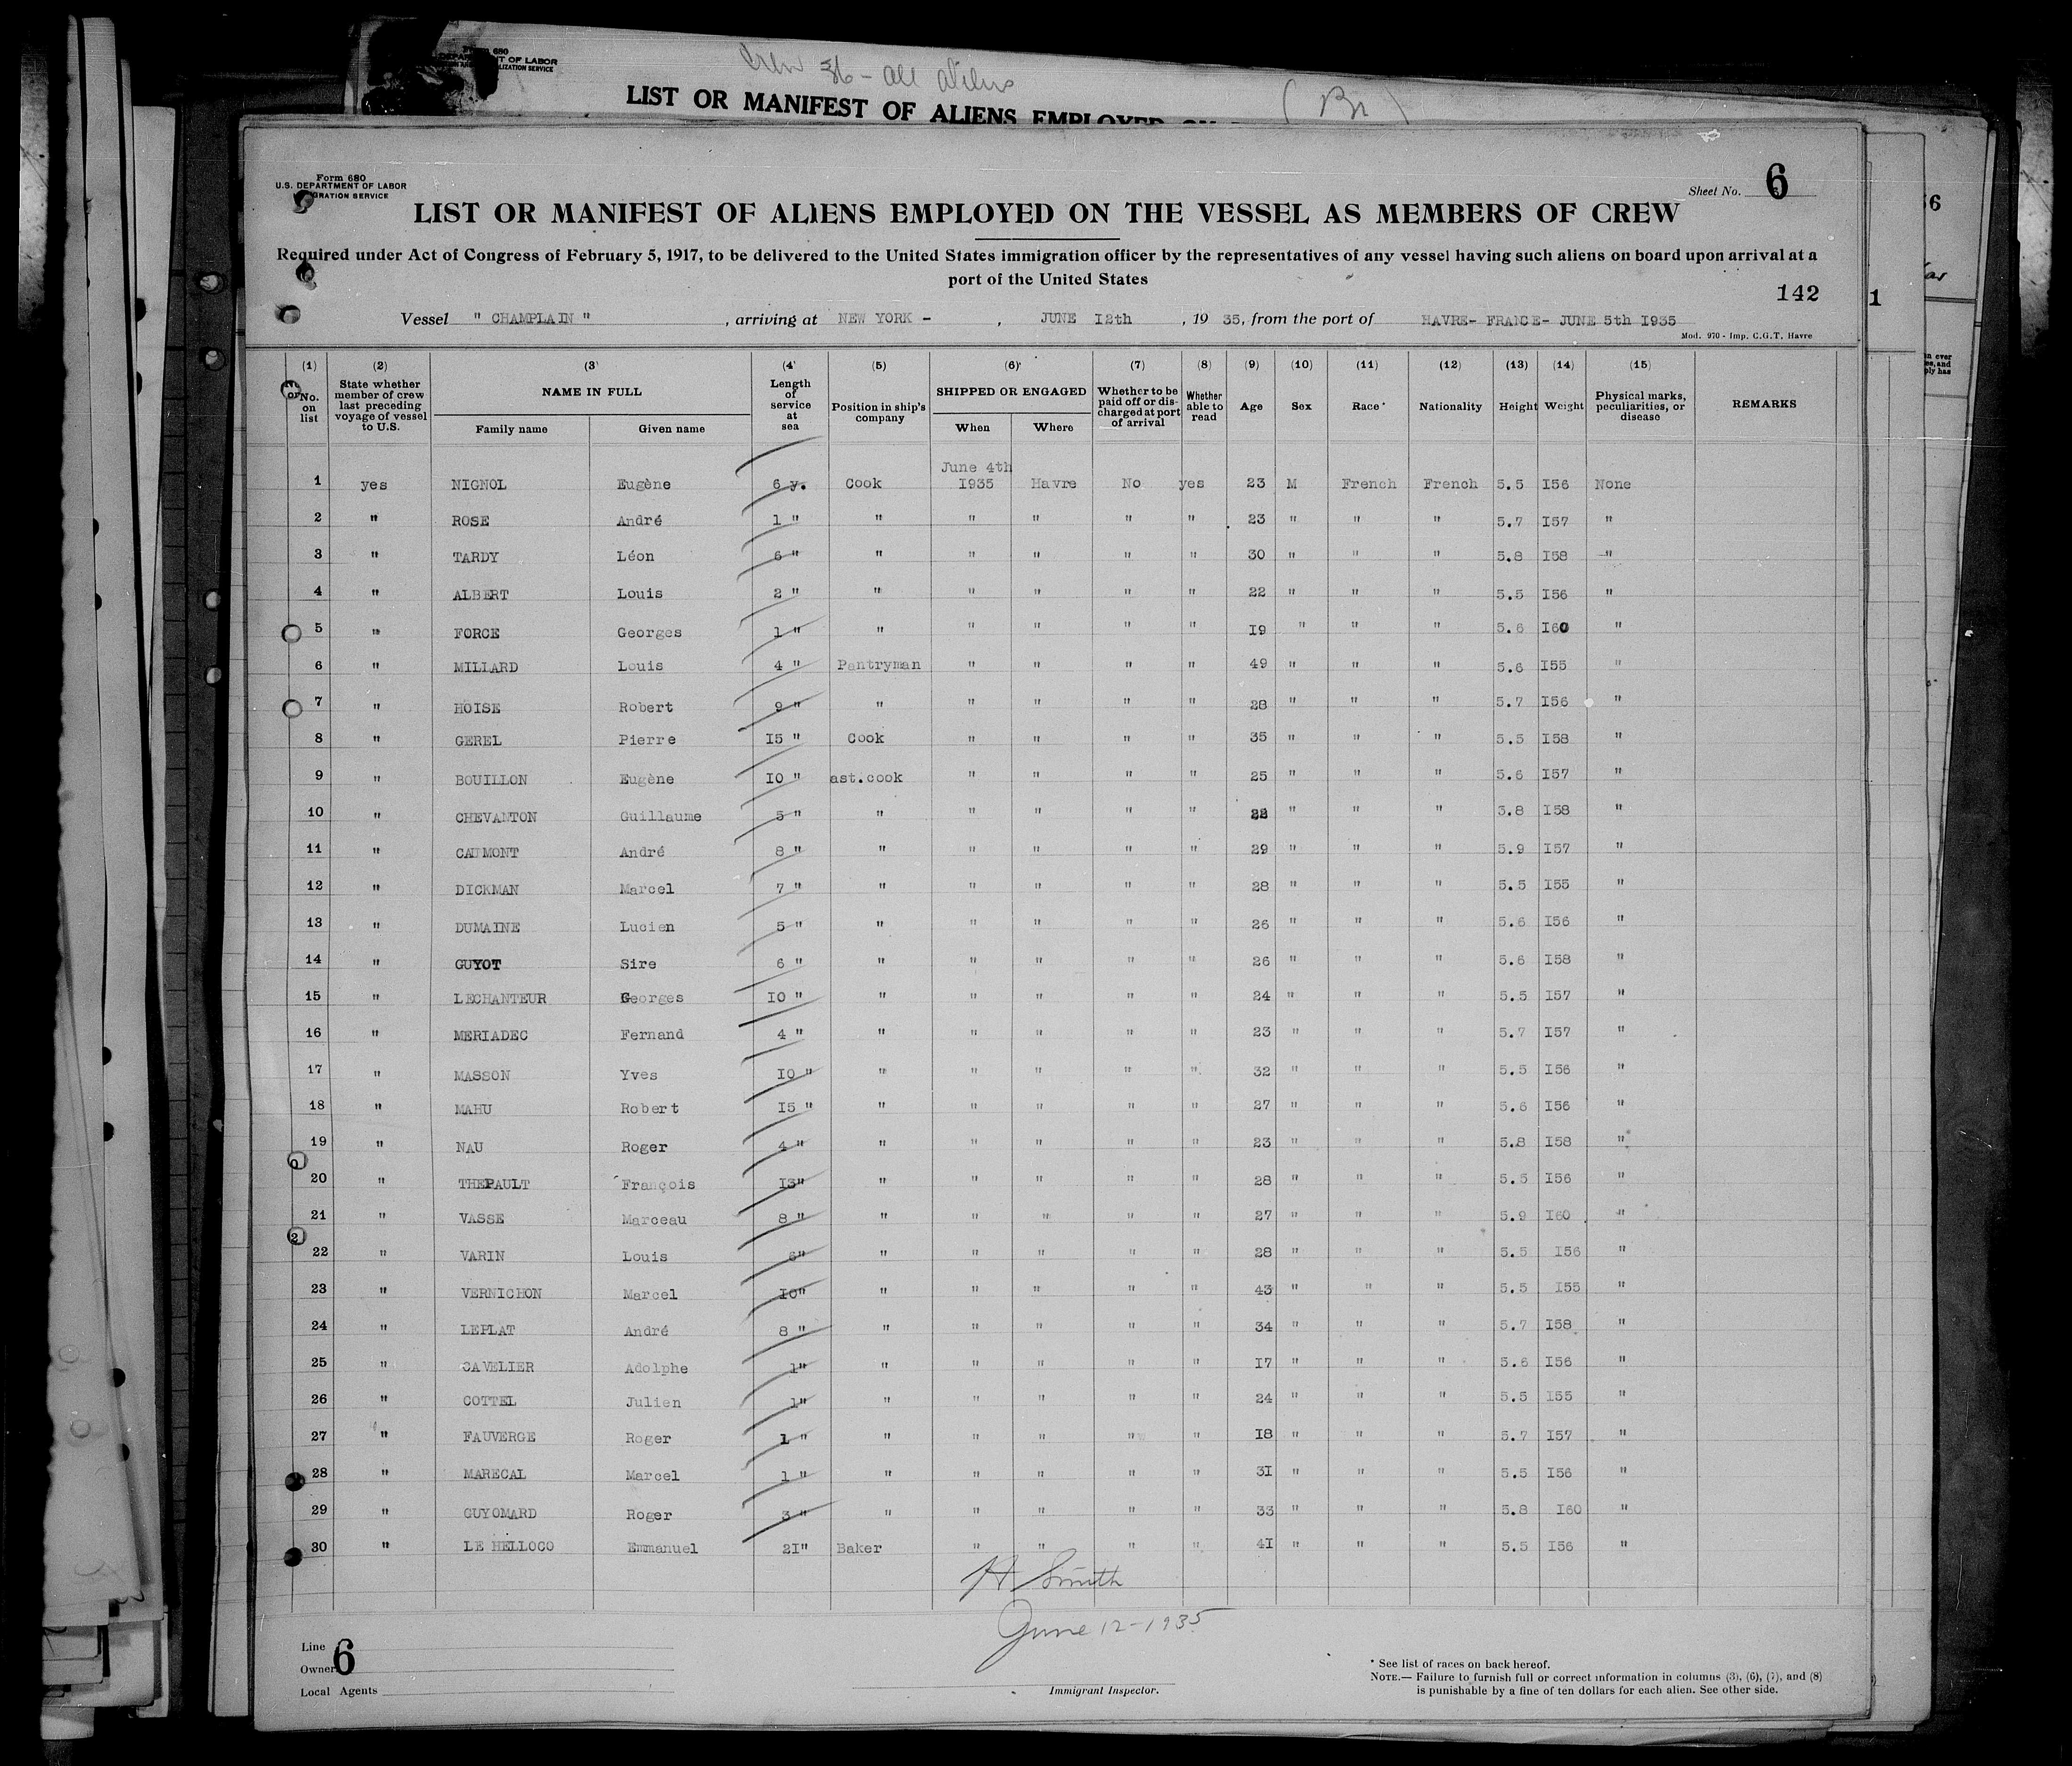 Form 680
U.S. DEPARTMENT OF LABOR
crew 36 - all aliens
( Bn )
LIST OR MANIFEST OF ALIENS EMPLOYED
Form 680
U.S. DEPARTMENT OF LABOR
IMMIGRATION SERVICE
Sheet No. 6
LIST OR MANIFEST OF ALIENS EMPLOYED ON THE VESSEL AS MEMBERS OF CREW
Required under Act of Congress of February 5, 1917, to be delivered to the United States immigration officer by the representatives of any vessel having such aliens on board upon arrival at a
port of the United States
142
Vessel " CHAMPLAIN " , arriving at NEW YORK - , JUNE I2th , 19 35, from the port of HAVRE- FRANCE- JUNE 5th I935
Mod. 970 - Imp. C.G.T. Havre
(1) (2) (3) (4) (5) (6) (7) (8) (9) (10) (11) (12) (13) (14) (15)
No. on list State whether member of crew last preceding voyage of vessel to U.S. NAME IN FULL Family name Given name Length of service at sea Position in ship's company SHIPPED OR ENGAGED When Where Whether to be paid off or discharged at port of arrival Whether able to read Age Sex Race * Nationality Height Weight Physical marks, peculiarities, or disease REMARKS
June 4th
1 yes NIGNOL Eugène 6 y. Cook I935 Havre No yes 23 M French French 5.5 I56 None
2 " ROSE André 1 " " " " " " 23 " " " 5.7 I57 "
3 " TARDY Léon 6 " " " " " " 30 " " " 5.8 I58 "
4 " ALBERT Louis 2 " " " " " " 22 " " " 5.5 I56 "
5 " FORCE Georges 1 " " " " " " I9 " " " 5.6 I60 "
6 " MILLARD Louis 4 " Pantryman " " " " 49 " " " 5.6 I55 "
7 " HOISE Robert 9 " " " " " " 28 " " " 5.7 I56 "
8 " GEREL Pierre I5 " Cook " " " " 35 " " " 5.5 I58 "
9 " BOUILLON Eugène I0 " ast.cook " " " " 25 " " " 5.6 I57 "
10 " CHEVANTON Guillaume 5 " " " " " " " " " 5.8 I58 "
11 " CAUMONT André 8 " " " " " " 29 " " " 5.9 I57 "
12 " DICKMAN Marcel 7 " " " " " " 28 " " " 5.5 I55 "
13 " DUMAINE Lucien 5 " " " " " " 26 " " " 5.6 I56 "
14 " GUYOT Sire 6 " " " " " " 26 " " " 5.6 I58 "
15 " LECHANTEUR Georges I0 " " " " " " 24 " " " 5.5 I57 "
16 " MERIADEC Fernand 4 " " " " " " 23 " " " 5.7 I57 "
17 " MASSON Yves I0 " " " " " " 32 " " " 5.5 I56 "
18 " MAHU Robert I5 " " " " " " 27 " " " 5.6 I56 "
19 " NAU Roger 4 " " " " " " 23 " " " 5.8 I58 "
20 " THEPAULT François I3" " " " " " 28 " " " 5.5 I56 "
21 " VASSE Marceau 8 " " " " " " 27 " " " 5.9 I60 "
22 " VARIN Louis 6" " " " " " 28 " " " 5.5 I56 "
23 " VERNICHON Marcel I0" " " " " " 43 " " " 5.5 I55 "
24 " LEPLAT André 8 " " " " " " 34 " " " 5.7 I58 "
25 " CAVELIER Adolphe 1" " " " " " I7 " " " 5.6 I56 "
26 " COTTEL Julien 1" " " " " " 24 " " " 5.5 I55 "
27 " FAUVERGE Roger 1 " " " " " " I8 " " " 5.7 I57 "
28 " MARECAL Marcel 1 " " " " " " 3I " " " 5.5 I56 "
29 " GUYOMARD Roger 3 " " " " " " 33 " " " 5.8 I60 "
30 " LE HELLOCO Emmanuel 2I" Baker " " " " 4I " " " 5.5 I56 "
H Smith
June 12-1935
Immigrant Inspector.
Line
Owner
6
Local Agents
* See list of races on back hereof.
NOTE.— Failure to furnish full or correct information in columns (3), (6), (7), and (8)
is punishable by a fine of ten dollars for each alien. See other side.